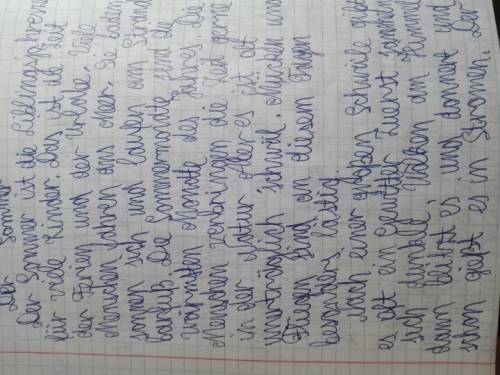 Der Sommer
Der Sommer ist die Lieblingsjahresze
für viele Kinder. Das ist die Zeit
der Ferien und der Urlaube. Viele
Menschen fahren ans Meer. Sie baden,
sonnen sich und laufen am Strand
barfuß. Die Sommermonate sind die
wärmsten Monate des Jahres. Die
Menschen verbringen die Zeit gerne
in der Natur. Aber es ist oft
unerträglich schwül. Mücken und
Fliegen sind an diesen Tagen
besonders lästig.
Nach einer großen Schwüle gibt
es oft ein Gewitter. Zuerst sammeln
sich dunkle Wolken am Himmel,
dann blitzt es und donnert und
schon gießt es in Strömen. Der